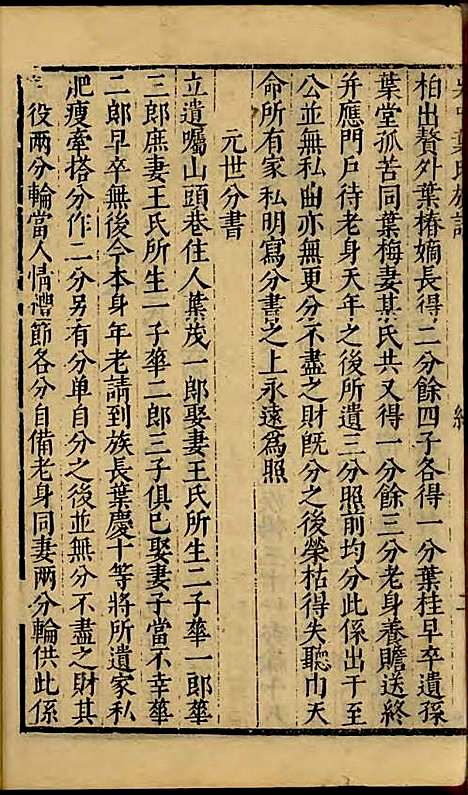 柏出贅外葉椿嫡長得二分餘四子各得一分葉桂早卒遺孫
葉堂孤苦同葉梅妻某氏共又得一分餘三分老身養贍送終
并應門戶待老身天年之後所遺三分照前均分此係出于至
公並無私曲亦無更分不盡之財旣分之後榮枯得失聽由天
命所有家私明寫分書之上永遠爲照
元世分書
立遺囑山頭巷住人葉茂一郎娶妻王氏所生二子華一郎華
三郎庶妻王氏所生一子華二郎三子俱巳娶妻子當不幸華
二郎早卒無後今本身年老請到族長葉慶十等將所遺家私
肥瘦牽搭分作二分另有分单自分之後並無分不盡之財其
役兩分輪當人情禮節各分自備老身同妻兩分輪供此係